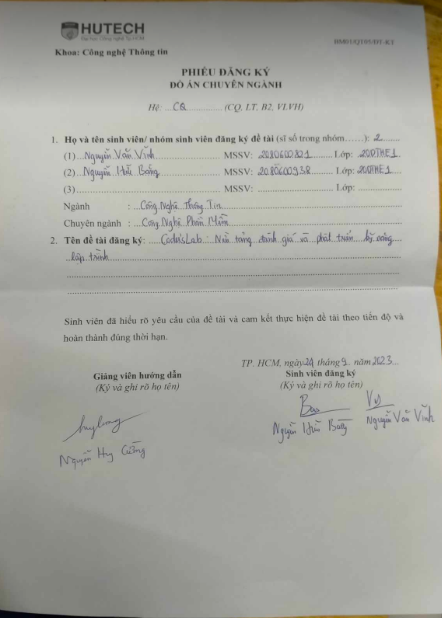 HUTECH
Đại học Công nghệ Tp.HCM
Khoa: Công nghệ Thông tin
PHIẾU ĐĂNG KÝ
ĐỒ ÁN CHUYÊN NGÀNH
Hệ: CQ (CQ, LT, B2, VLVH)
1. Họ và tên sinh viên/ nhóm sinh viên đăng ký đề tài (sĩ số trong nhóm): 2
(1) Nguyễn Văn Vĩnh MSSV: 2080600801 Lớp: 20DTHE1
(2) Nguyễn Hữu Bằng MSSV: 2080600938 Lớp: 20DTHE1
(3) MSSV: Lớp:
Ngành : Công Nghệ Thông Tin
Chuyên ngành : Công Nghệ Phần Mềm
2. Tên đề tài đăng ký: Nền tảng đánh giá và phát triển kỹ năng
lập trình
Sinh viên đã hiểu rõ yêu cầu của đề tài và cam kết thực hiện đề tài theo tiến độ và
hoàn thành đúng thời hạn.
TP. HCM, ngày 24 tháng 9 năm 2023
Giảng viên hướng dẫn Sinh viên đăng ký
(Ký và ghi rõ họ tên) (Ký và ghi rõ họ tên)
Nguyễn Huy Cường Nguyễn Hữu Bằng Nguyễn Văn Vĩnh